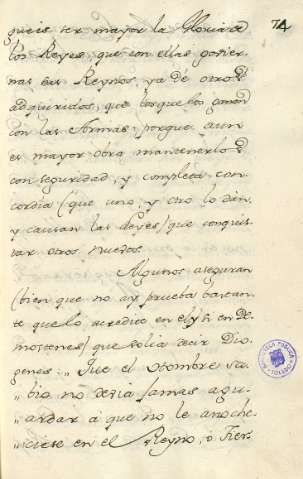 74
gueis ser mayor la Gloria de
los Reyes, que con ellas govier-
nan sus Reynos, ya de otros
adquiridos, que los que los ganan
con las Armas; porque aun
es mayor obra mantenerlos
con seguridad, y completa con-
cordia (que uno, y otro lo dan,
y causan las Leyes) que conquis-
tar otros nuevos.
Algunos aseguran
(bien que no ay prueba bastan-
te que lo acredite en el, y si en De-
mostenes) que solia decir Dio-
genes: " Que el Hombre sa-
" bio no devia jamas agu-
" ardar á que no le anoche-
" ciese en el Reyno, ó Tier-
BIBLIOTECA PUBLICA
TOLEDO